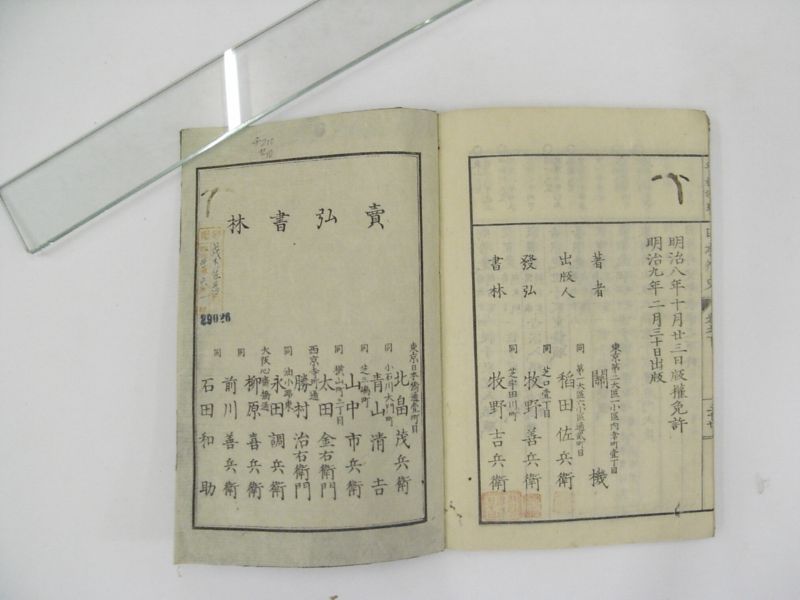 明治八年十月廿三日版權免許
明治九年二月三十日出版
東京第二大区一小区内幸町壹丁目
著者 關 機
同 第一大区六小区通貳町目
出版人 稻田佐兵衛
同 芝口壹丁目
發弘 牧野善兵衛
同 芝宇田川町
書林 牧野吉兵衛
賣弘書林
東京日本橋通壹町目
北畠茂兵衛
同 小石川大門町
青山清吉
同
山中市兵衛
同 横山町三丁目
太田金右衛門
西京寺町通
勝村治右衛門
同 油小路東
永田調兵衛
大阪心齋橋通
柳原喜兵衛
同
前川善兵衛
同
石田和助
29026